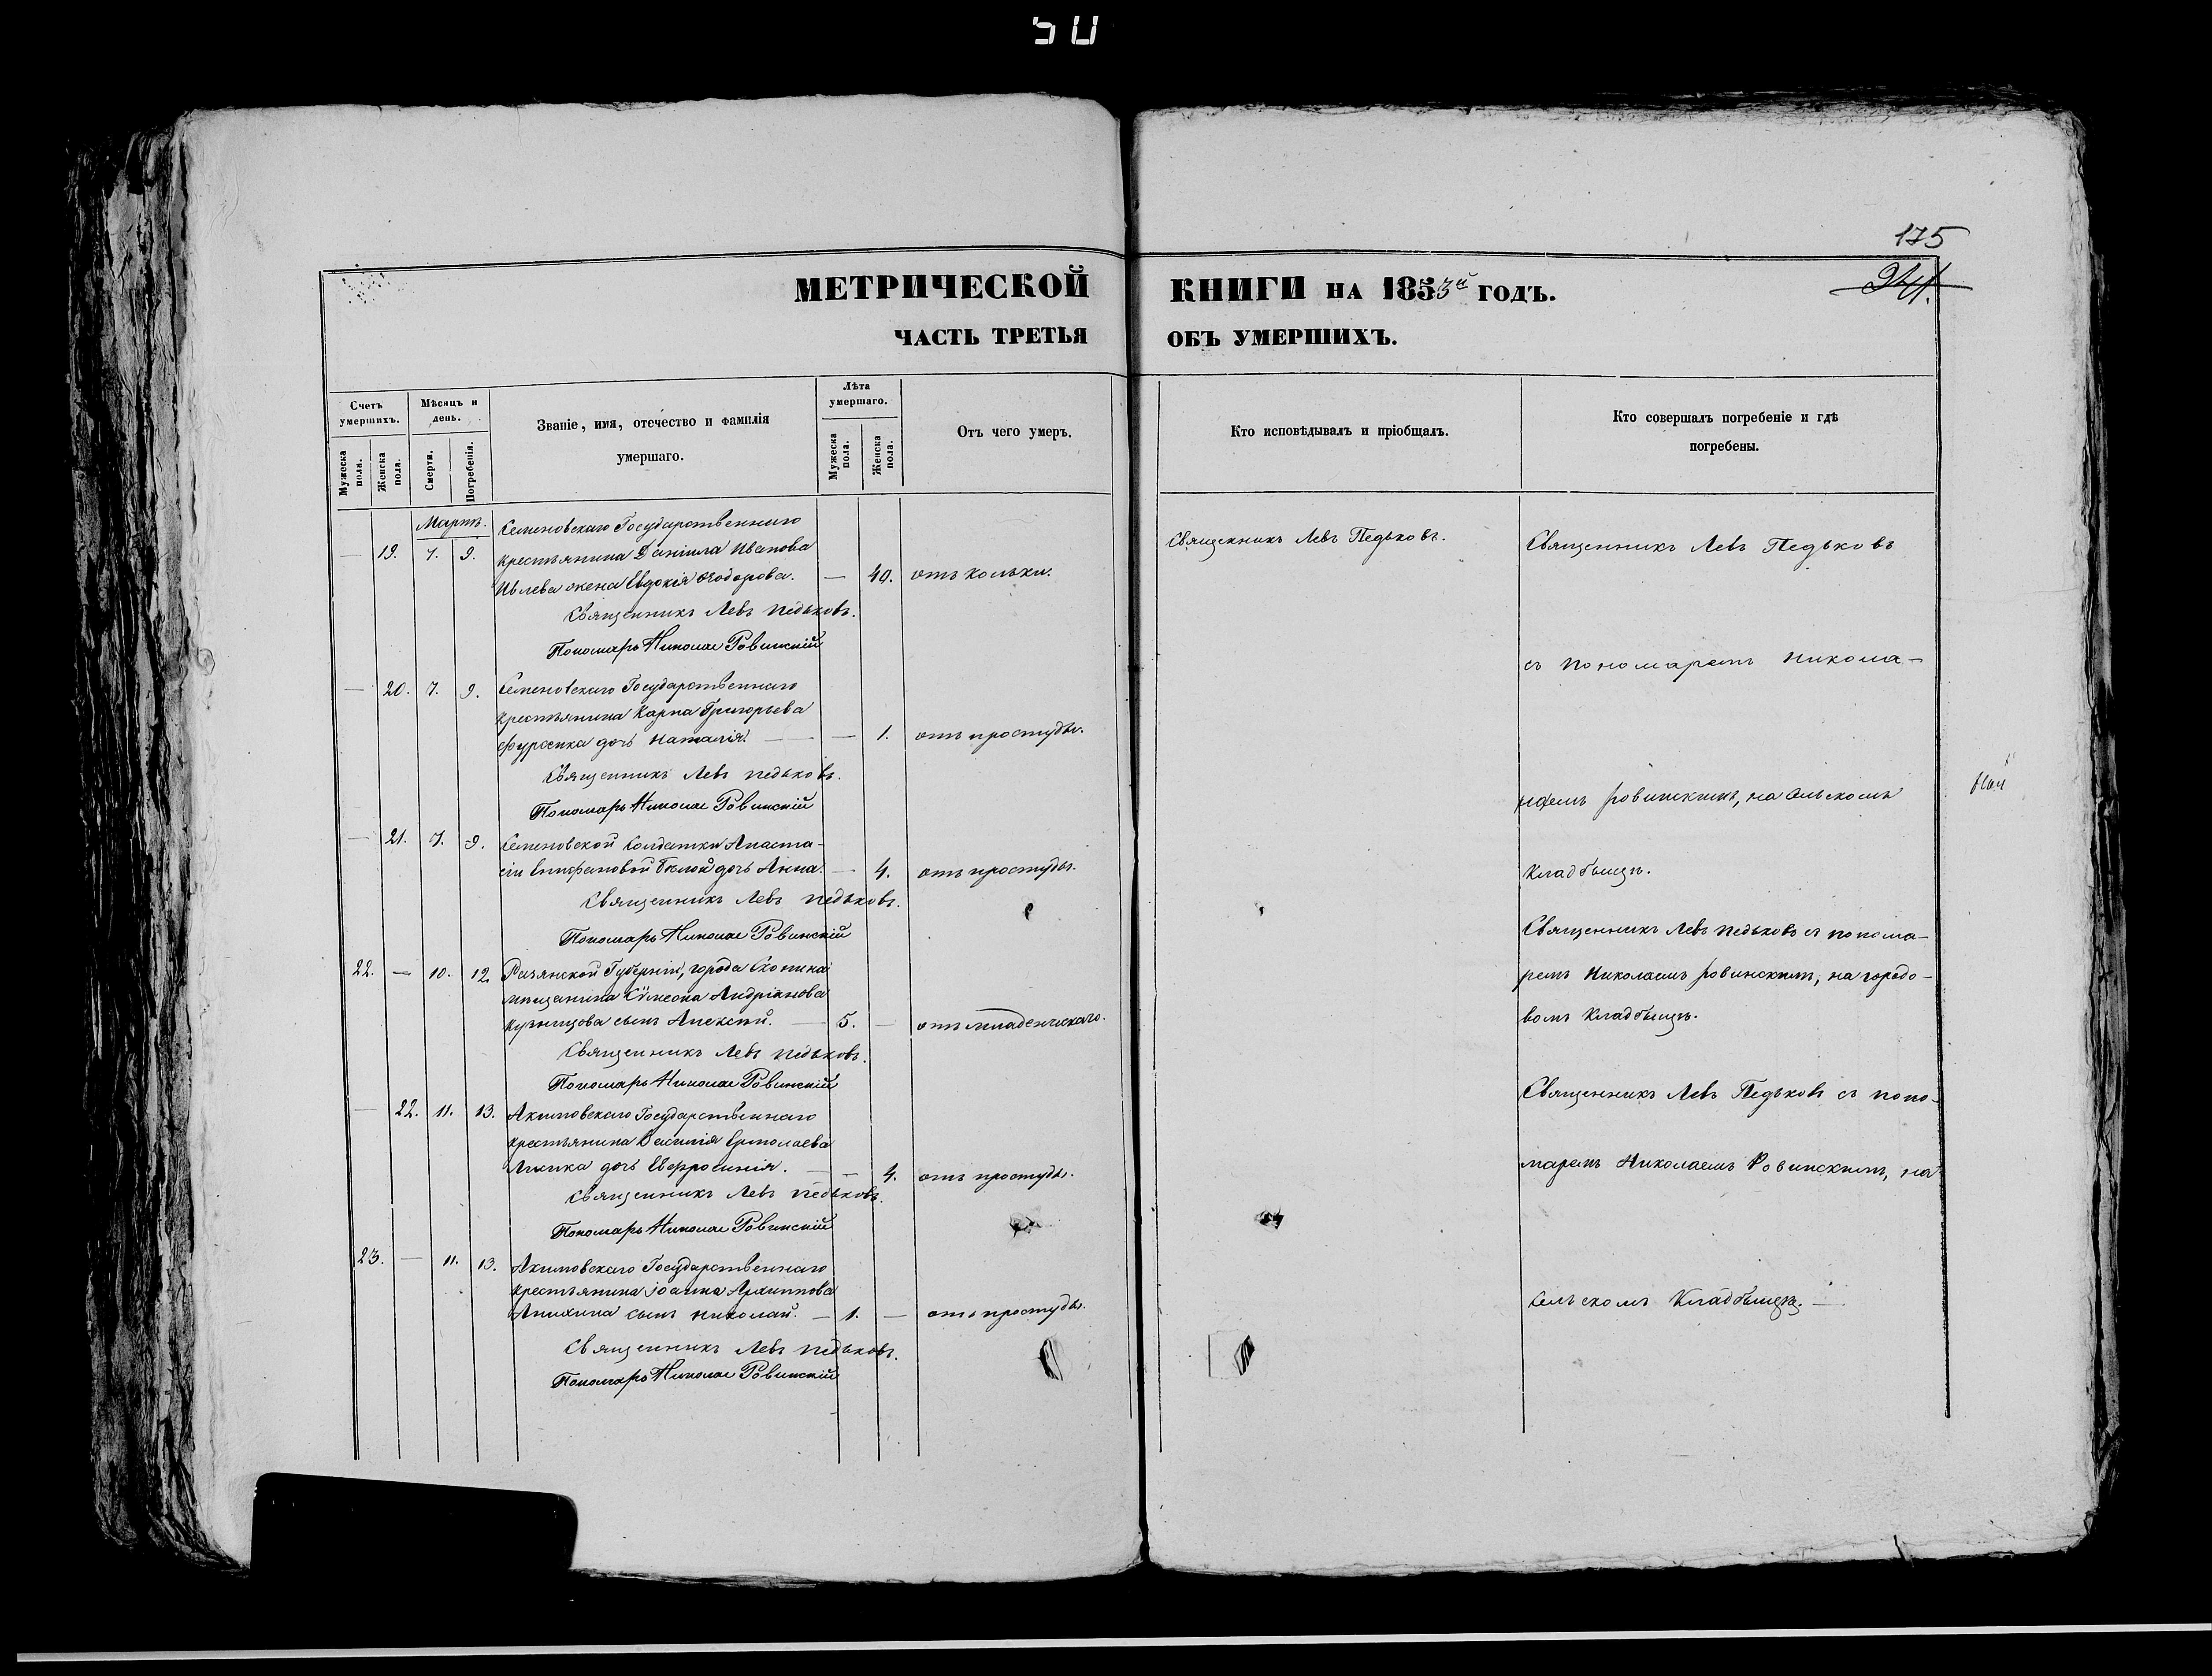 50
175
241.
МЕТРИЧЕСКОЙ КНИГИ НА 1853й ГОДЪ.
ЧАСТЬ ТРЕТЬЯ ОБЪ УМЕРШИХЪ.
Счетъ умершихъ.
Мѣсяцъ и день.
Званіе, имя, отечество и фамилія
умершаго.
Лѣта умершаго.
Отъ чего умеръ.
Кто исповѣдывалъ и пріобщалъ.
Кто совершалъ погребеніе и гдѣ
погребены.
Мужеска пола.
Женска пола.
Смерти.
Погребенія.
Мужеска пола.
Женска пола.
Мартъ.
Семеновскаго Государственнаго
— 19. 7. 9. крестьянина Даніила Иванова
Ивлева жена Евдокія Ѳеодорова. — 40. отъ колики.
Священникъ Левъ Педьковъ.
Пономарь Николае Ровинскій
— 20. 7. 9. Семеновскаго Государственнаго
крестьянина Карпа Григорьева
дочь Наталія. — — 1. отъ простуды.
Священникъ Левъ Педьковъ.
Пономарь Николае Ровинскій
— 21. 7. 9. Семеновской Солдатки Анаста-
сіи Епифановой дочь Анна. — 4. отъ простуды.
Священникъ Левъ Педьковъ.
Пономарь Николае Ровинскій
22. — 10. 12. Рязанской Губерніи, города Скопина
мѣщанина Сѵмеона Андріанова
Кузнецова сынъ Алексѣй. — 5. — отъ младенческаго.
Священникъ Левъ Педьковъ.
Пономарь Николае Ровинскій
— 22. 11. 13. Акимовскаго Государственнаго
крестьянина Василія Ермолаева
дочь Евфросинія. — — 4. отъ простуды.
Священникъ Левъ Педьковъ.
Пономарь Николае Ровинскій
23. — 11. 13. Акимовскаго Государственнаго
крестьянина Іоанна Архиппова
Анихина сынъ Николай. — 1. — отъ простуды.
Священникъ Левъ Педьковъ.
Пономарь Николае Ровинскій
Священникъ Левъ Педьковъ.
Священникъ Левъ Педьковъ
съ пономаремъ Никола-
Ровинскимъ, на сельскомъ
кладбищѣ.
Священникъ Левъ Педьковъ съ понома-
ремъ Николаемъ Ровинскимъ, на городо-
вомъ кладбищѣ.
Священникъ Левъ Педьковъ съ поно-
маремъ Николаемъ Ровинскимъ, на
сельскомъ Кладбищѣ. —